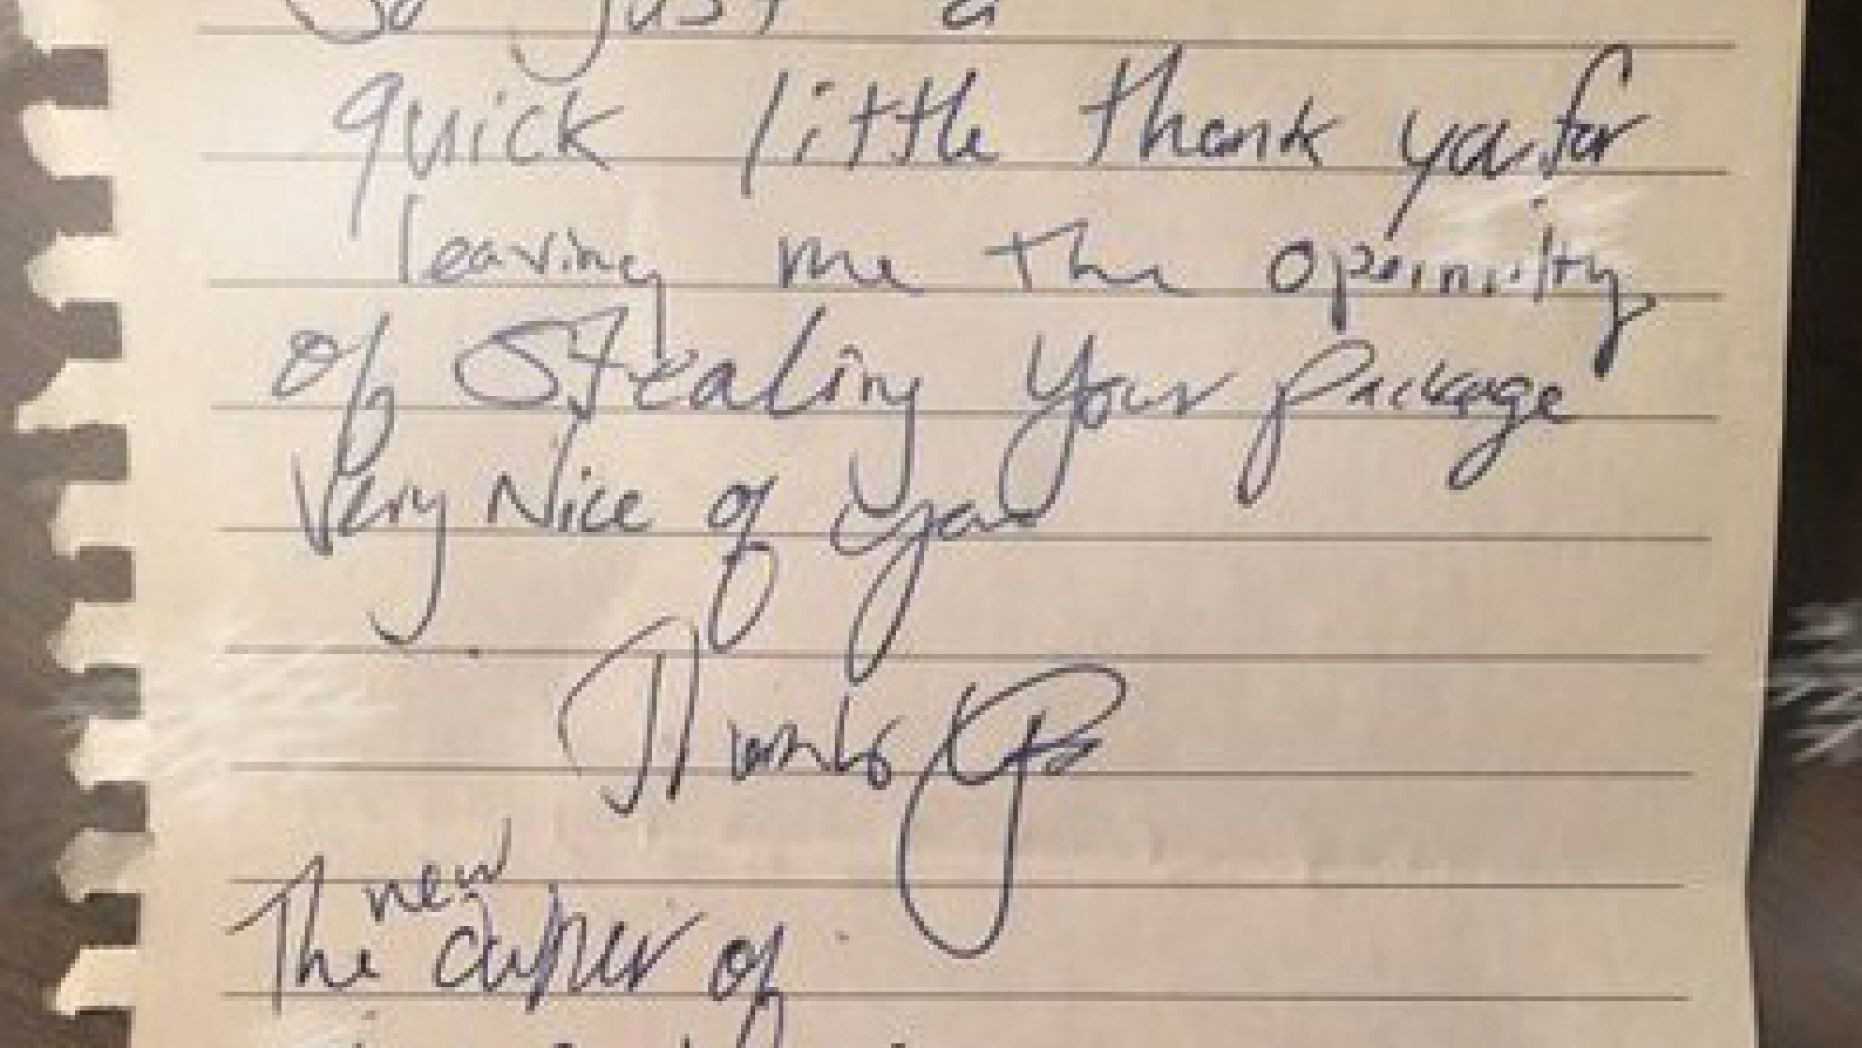 So just a
quick little thank you for
leaving me the
of Stealing your package
Very Nice of you
Thanks
new
The owner of